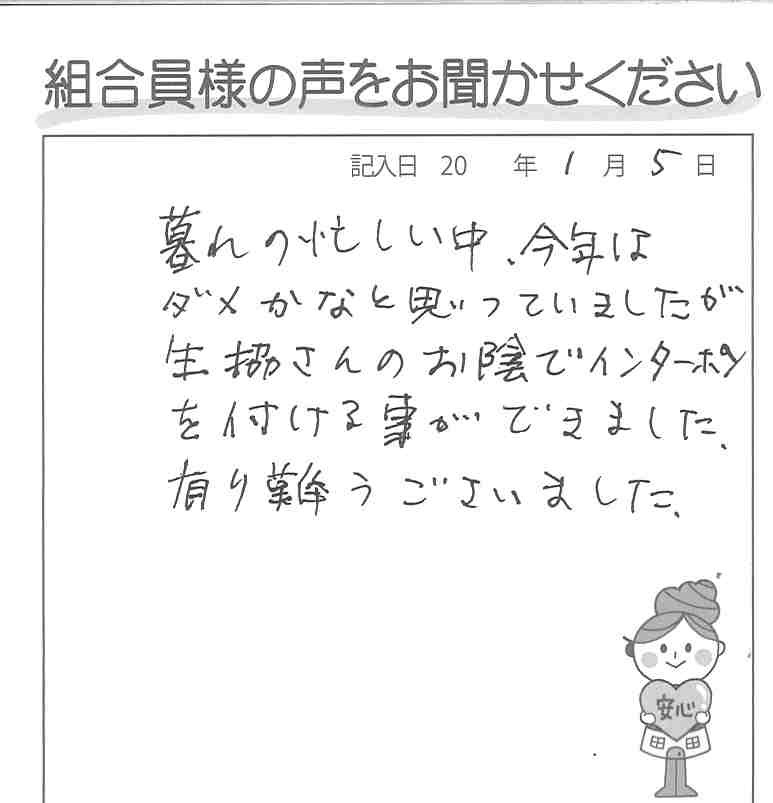 組合員様の声をお聞かせください
記入日 20 年 1 月 5 日
暮れの忙しい中、今年は
ダメかなと思っていましたが
生協さんのお陰でインターホン
を付ける事ができました、
有り難うございました、
安心